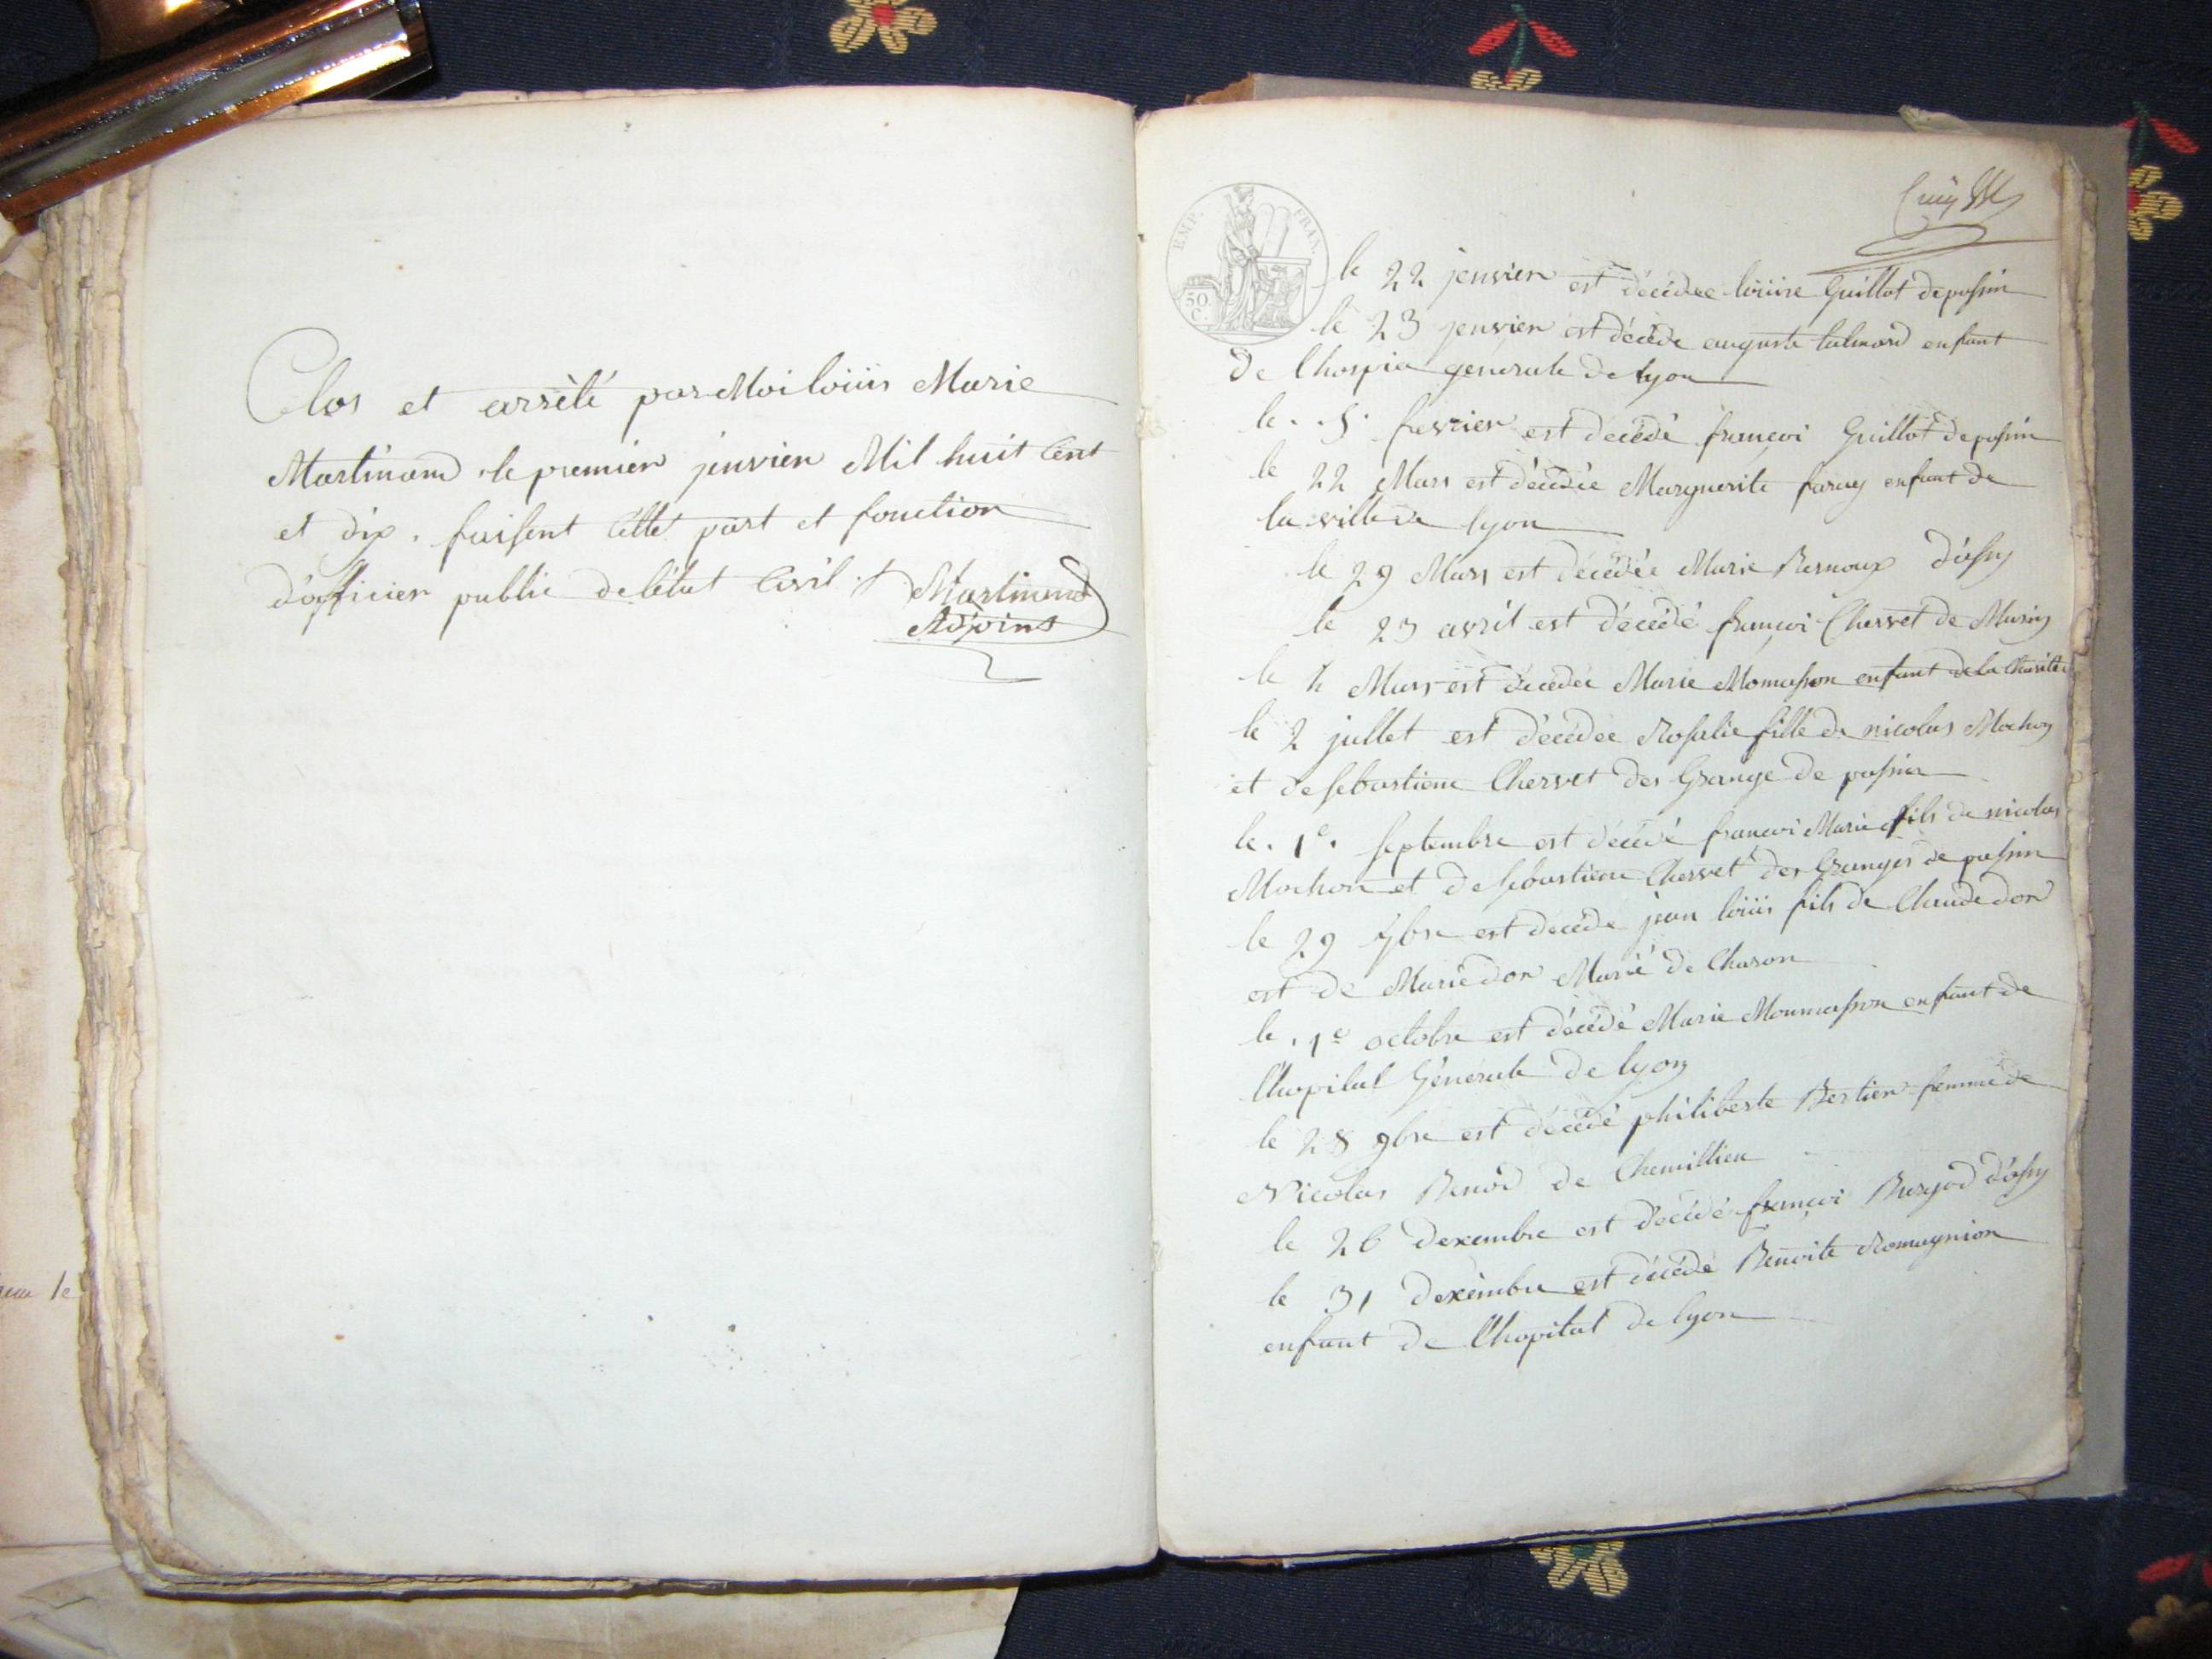 Clos et arrêté par Moi loüis Marie
Martinand le premier jenvier Mil huit Cent
et dix. faisent Cette part et fonction
d'officier public de l'état Civil.
Martinand
Adjoint
EMP. FRAN.
50 C.
le 22 jenvier est décédée loüise Guillot de passin
le 23 jenvier est décédé auguste talmard enfant
de lhospia generale de lyon
le .5. fevrier est decédé françoi Guillot de passin
le 22 Mars est décédée Marguerite faray enfant de
la ville de lyon
le 29 Mars est décédée Marie Bernoux d'assy
le 23 avril est décédé françoi Chervet de Musin
le 4 Mars est décédée Marie Momasson enfant de la Charité
le 2 jullet est décédée Rosalie fille de nicolas Mochon
et de sebastiene Chervet des Grange de passin
le. 1e. septembre est décédé françoi Marie fils de nicolas
Mochon et de sébastiene Chervet des Granges de passin
le 29 7bre est décédé jean loüis fils de Claude don
est de Marie don Marié de Charon
le. 1e octobre est décédé Marie Monmasson enfant de
l'hopital Génerale de lyon
le 28 9bre est décédé philiberte Bertier femme de
Nicolas Benod de Chemillieu
le 26 dexembre est décédé françoi Burjod d'assy
le 31 dexembre est décédé Benoite Romagnion
enfant de l'hopital de lyon